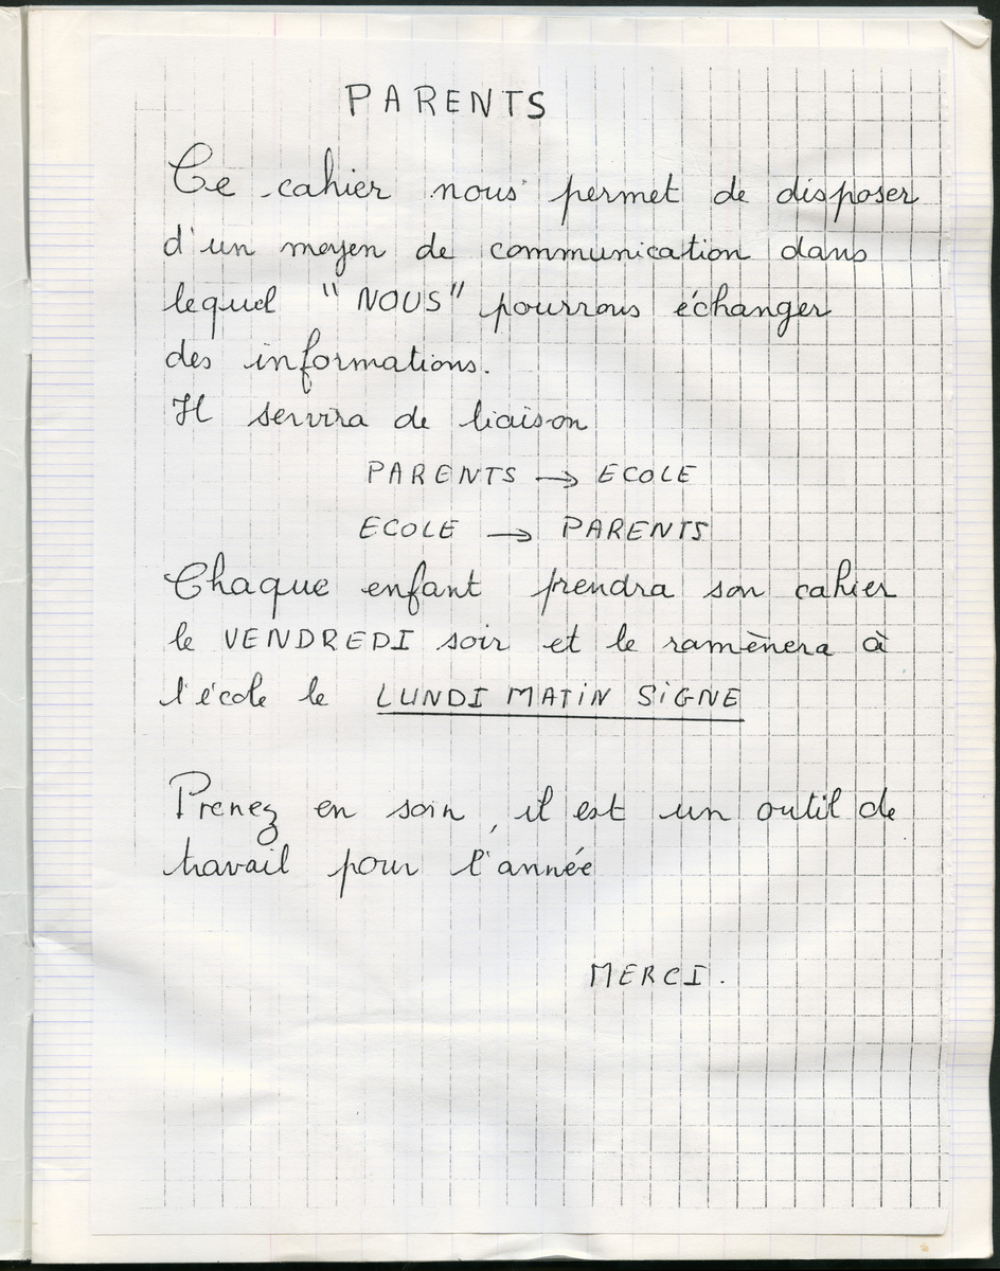 PARENTS
Ce cahier nous permet de disposer
d'un moyen de communication dans
lequel "NOUS" pourrons échanger
des informations.
Il servira de liaison
PARENTS → ECOLE
ECOLE → PARENTS
Chaque enfant prendra son cahier
le VENDREDI soir et le ramènera à
l'école le LUNDI MATIN SIGNE
Prenez en soin, il est un outil de
travail pour l'année
MERCI.